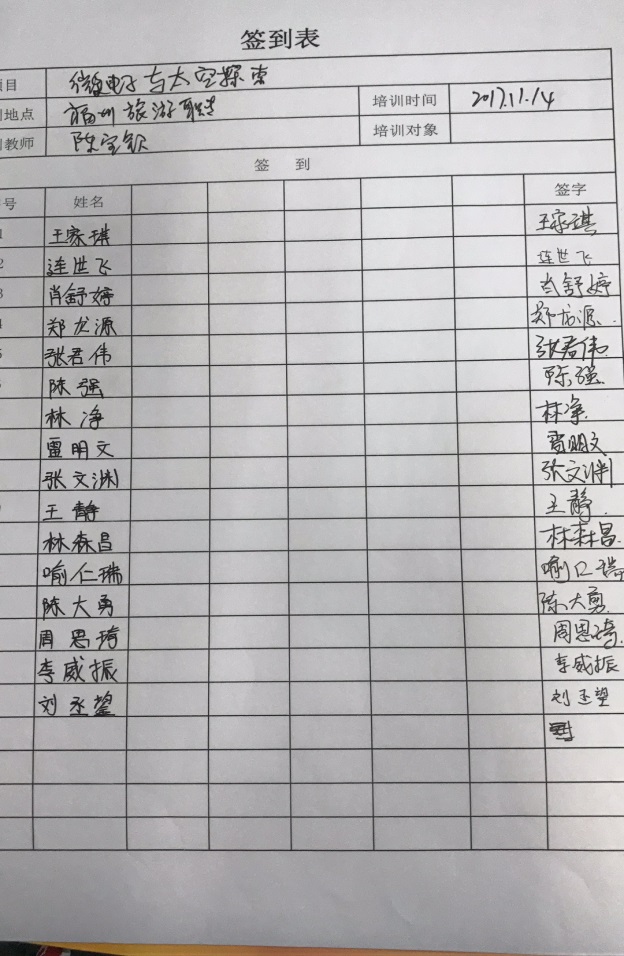 签到表
项目 微电子与太空探索
训地点 福州旅游职专 培训时间 2017.11.14
训教师 陈宝钦 培训对象
签 到
号 姓名 签字
1 王家琪 王家琪
2 连世飞 连世飞
3 肖舒婷 肖舒婷
4 郑龙源 郑龙源
5 张君伟 张君伟
6 陈强 陈强
林净 林净
雷明文 雷明文
张文渊 张文渊
王静 王静
林森昌 林森昌
喻仁瑞 喻仁瑞
陈大勇 陈大勇
周思琦 周思琦
李威振 李威振
刘丞望 刘丞望